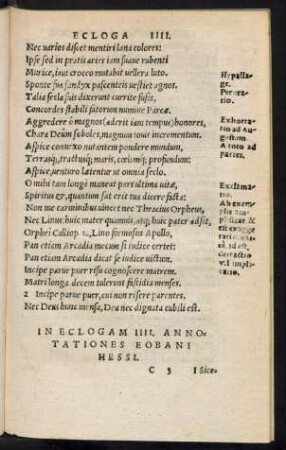 ECLOGA IIII.
Nec uarios discet mentiri lana colores:
Ipse sed in pratis aries iam suaue rubenti
Murice, iam croceo mutabit uellera luto.
Sponte sua sandyx pascenteis uestiet agnos.
Talia secla suis dixerunt currite fusis,
Concordes stabili fatorum numine Parcæ.
Aggredere ô magnos (aderit iam tempus) honores,
Chara Deûm soboles, magnum Iouis incrementum.
Aspice conuexo nutantem pondere mundum,
Terrasq́;, tractusq́; maris, cœlumq́; profundum:
Aspice, uenturo lætentur ut omnia seclo.
O mihi tam longè maneat pars ultima uitæ,
Spiritus &, quantum sat erit tua dicere facta:
Non me carminibus uincet nec Thracius Orpheus,
Nec Linus: huic mater quamuis, atq́; huic pater adsit,
Orphei Calliopea, Lino formosus Apollo,
Pan etiam Arcadia mecum si iudice certet:
Pan etiam Arcadia dicat se iudice uictum.
Incipe parue puer risu cognoscere matrem.
Matri longa decem tulerunt fastidia menses.
2 Incipe parue puer, cui non risere parentes,
Nec Deus hunc mensa, Dea nec dignata cubili est.
Hypallage.
Peroratio.
Exhortatio ad Augustum.
A toto ad partes.
Exclamatio.
IN ECLOGAM IIII. ANNO-
TATIONES EOBANI
HESSI.
C 3
1 Sice-